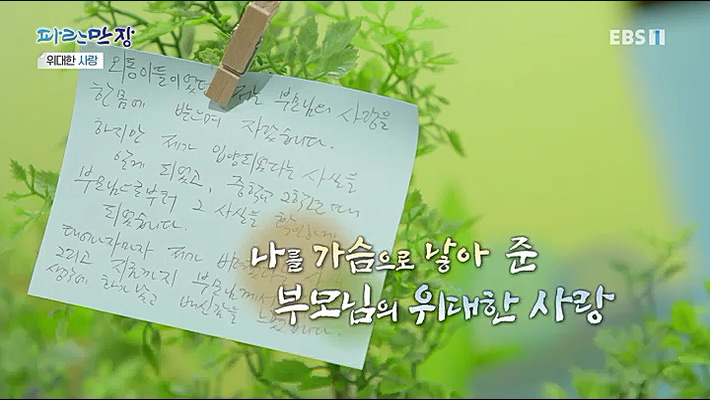 파란만장
위대한 사랑
EBS1
외동아들이었던 저는 부모님의 사랑을
한몸에 받으며 자랐습니다.
하지만 제가 입양되었다는 사실을
알게 되었고, 중학교 2학년 때
부모님으로부터 그 사실을
되었습니다.
태어나자마자 제가
그리고 지금까지 부모님께서
생각에 화가 났고 배신감을 느꼈습니다.
나를 가슴으로 낳아 준
부모님의 위대한 사랑